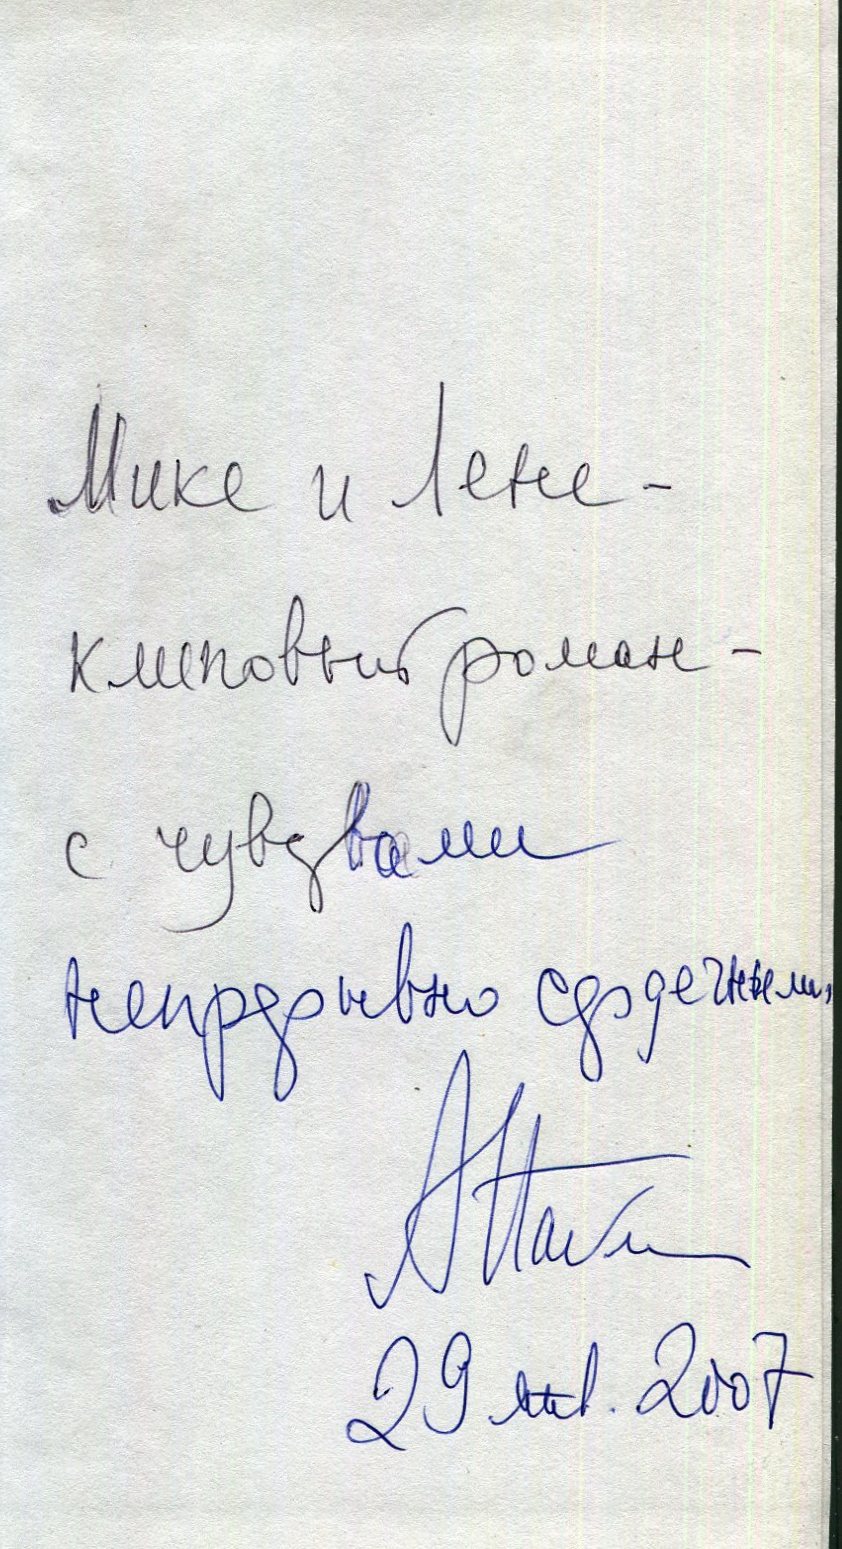 Мике и Лене -
клиповый роман -
с чувствами
непрерывно сердечными,
29 янв. 2007